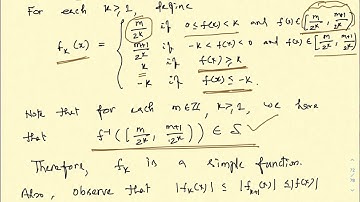 For each k ≥ 1, define
f_k(x) = { m/2^k if 0 ≤ f(x) < k and f(x) ∈ [m/2^k, m+1/2^k)
m+1/2^k if -k < f(x) < 0 and f(x) ∈ [m/2^k, m+1/2^k)
k if f(x) ≥ k
-k if f(x) ≤ -k.
Note that for each m ∈ ℤ, k ≥ 1, we have
that f^-1([m/2^k, m+1/2^k)) ∈ S ✓
Therefore, f_k is a simple function.
Also, observe that |f_k(x)| ≤ |f_k+1(x)| ≤ |f(x)|